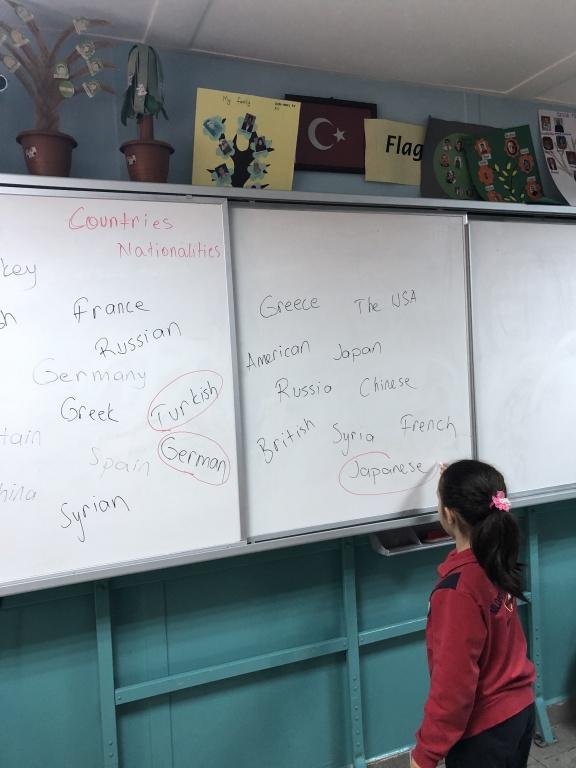 My family
Flag
Countries
Nationalities
key
sh
France
Russian
Germany
Greek
Turkish
tain
Spain
German
hina
Syrian
Greece The USA
American Japan
Russia Chinese
British Syria French
Japanese